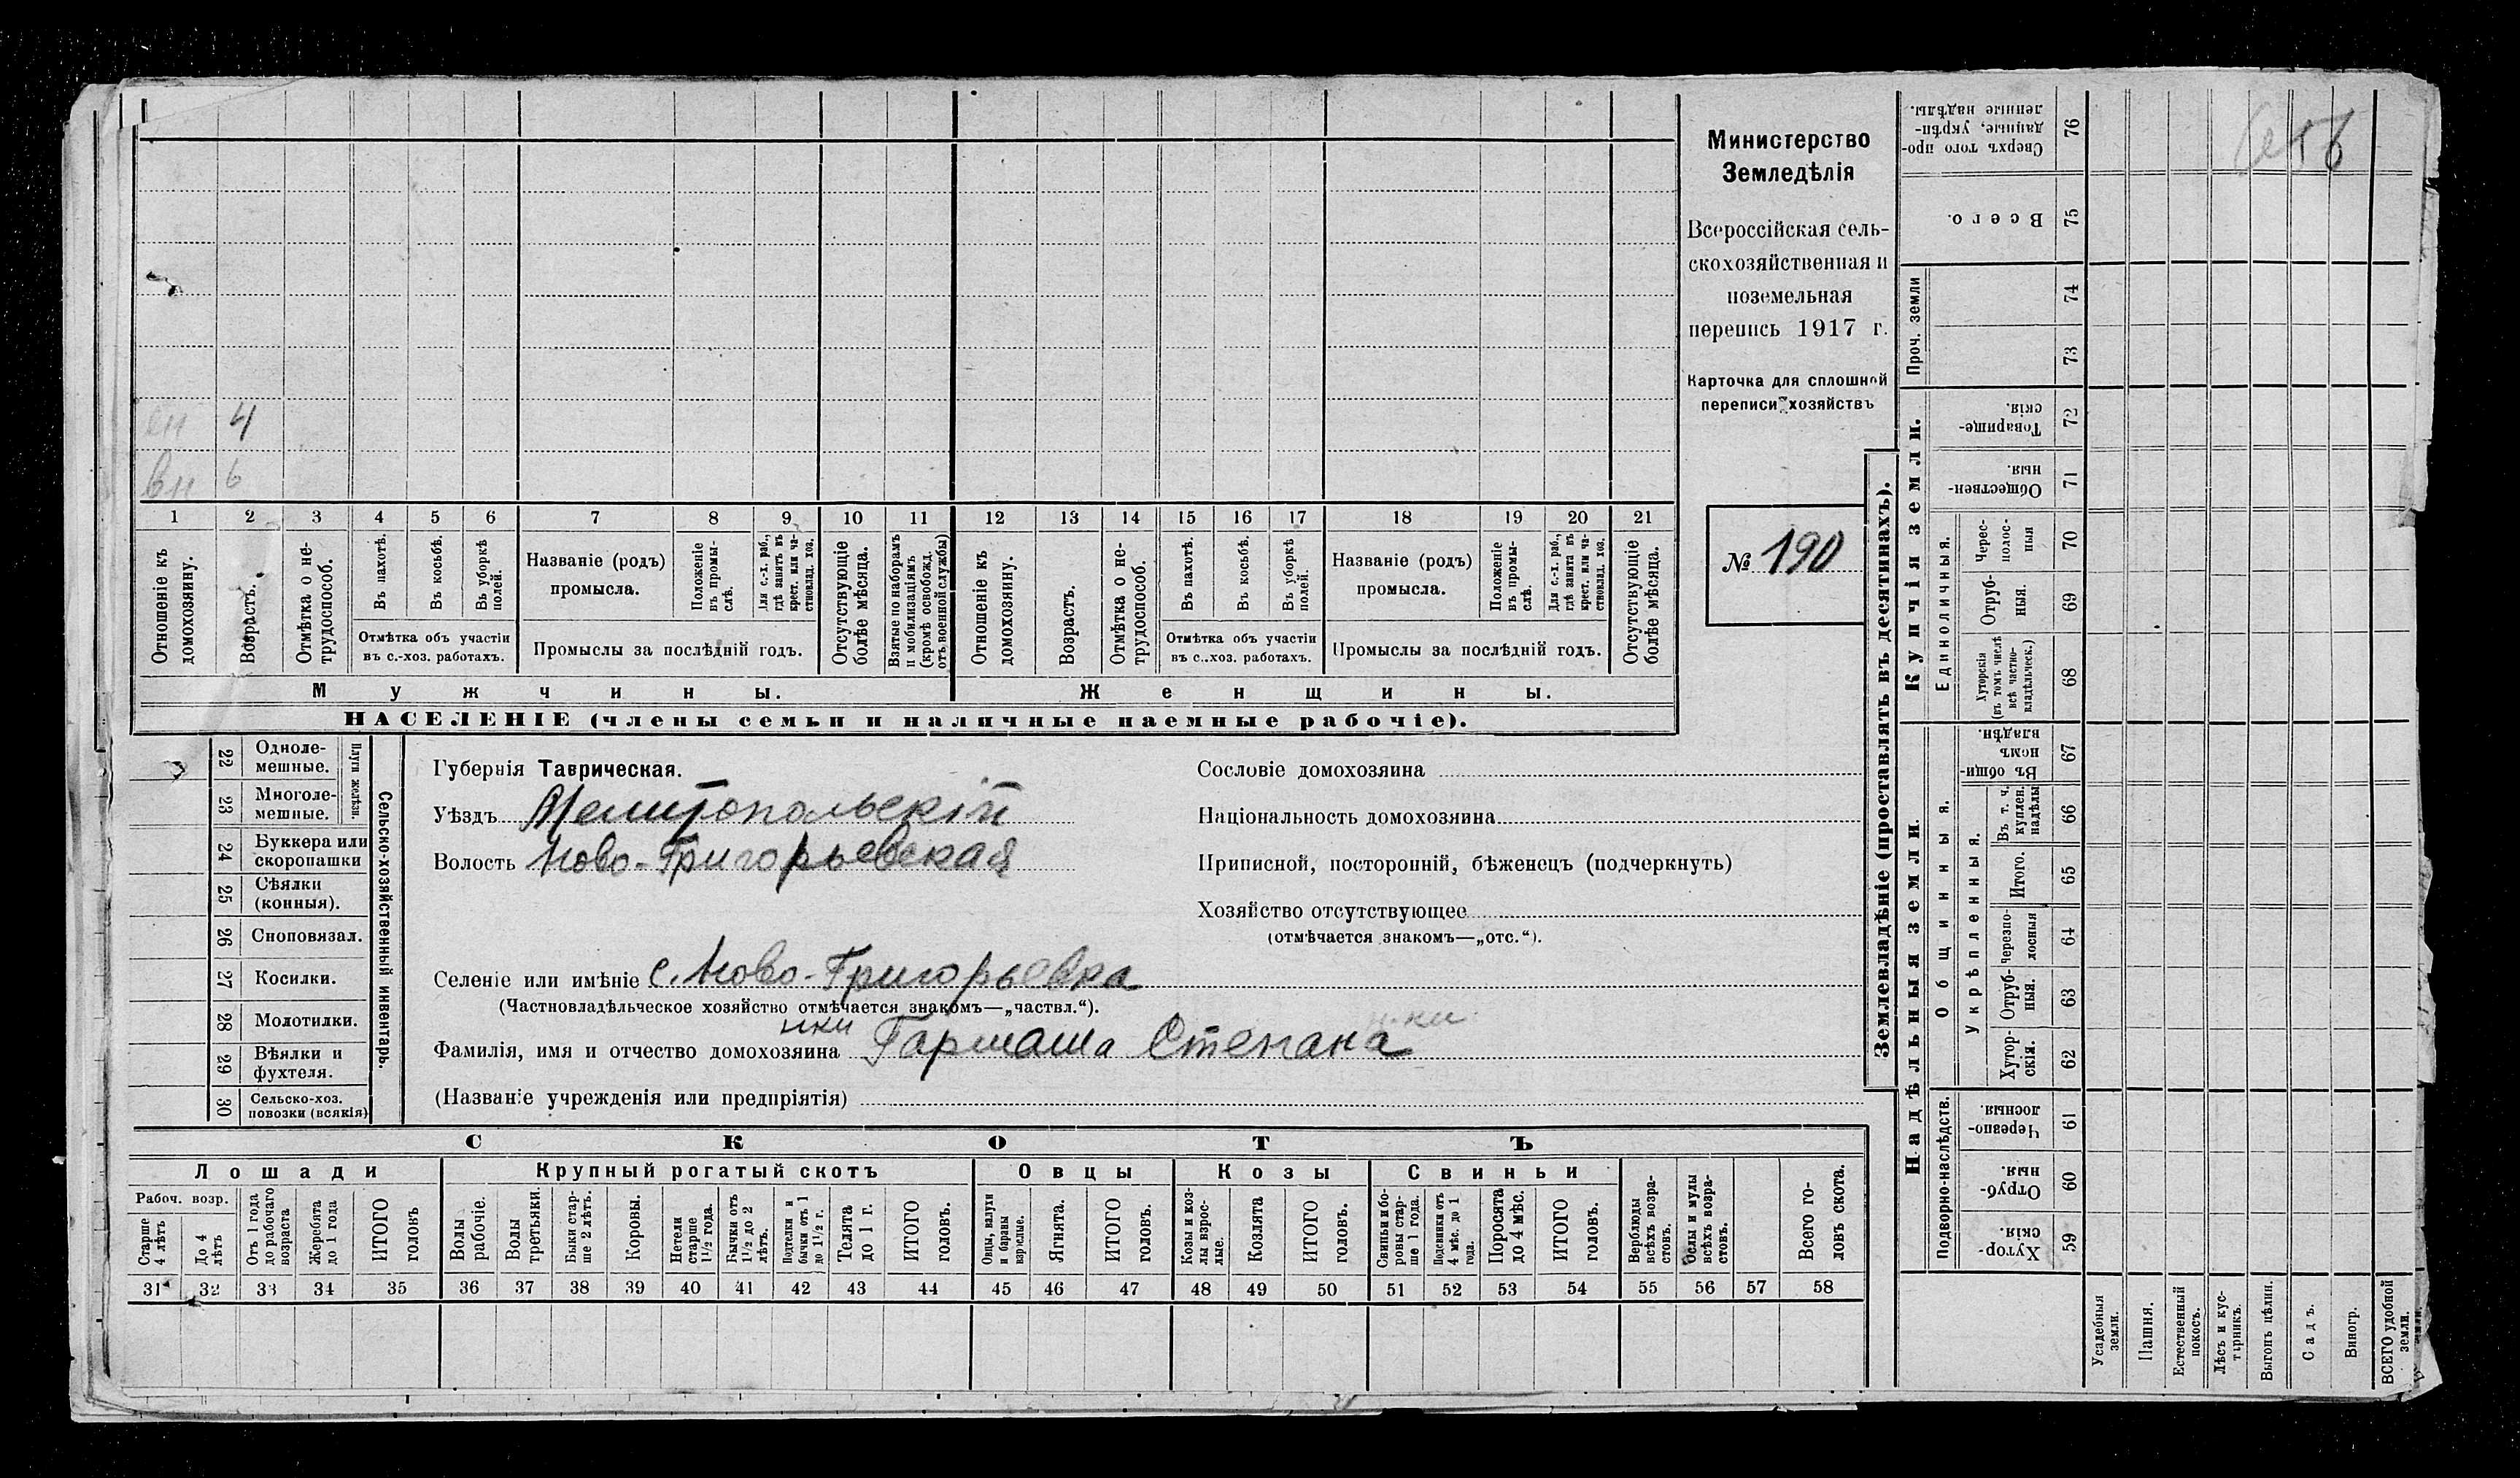 Министерство
Земледѣлія
Всероссійская сель-
скохозяйственная и
поземельная
перепись 1917 г.
Карточка для сплошной
переписи хозяйствъ
№ 190
4
вн 6
1 2 3 4 5 6 7 8 9 10 11 12 13 14 15 16 17 18 19 20 21
Отношеніе къ домохозяину.
Возрастъ.
Отмѣтка о не-трудоспособ.
Въ пахотѣ.
Въ косьбѣ.
Въ уборкѣ полей.
Отмѣтка объ участіи
въ с.-хоз. работахъ.
Названіе (родъ)
промысла.
Положеніе въ промы-слѣ.
Для с.-х. раб., гдѣ занятъ въ крест. или ча-стновлад. хоз.
Промыслы за послѣдній годъ.
Отсутствующіе болѣе мѣсяца.
Взятые по наборамъ и мобилизаціямъ (кромѣ освобожд. отъ военной службы)
Отношеніе къ домохозяину.
Возрастъ.
Отмѣтка о не-трудоспособ.
Въ пахотѣ.
Въ косьбѣ.
Въ уборкѣ полей.
Отмѣтка объ участіи
въ с.-хоз. работахъ.
Названіе (родъ)
промысла.
Положеніе въ промы-слѣ.
Для с.-х. раб., гдѣ занятъ въ крест. или ча-стновлад. хоз.
Промыслы за послѣдній годъ.
Отсутствующіе болѣе мѣсяца.
Мужчины. Женщины.
НАСЕЛЕНІЕ (члены семьи и наличные наемные рабочіе).
22 Одноле-мешные.
23 Многоле-мешные.
Плуги желѣзн.
24 Буккера или скоропашки
25 Сѣялки (конныя).
26 Сноповязал.
27 Косилки.
28 Молотилки.
29 Вѣялки и фухтеля.
30 Сельско-хоз. повозки (всякія)
Сельско-хозяйственный инвентарь.
Губернія Таврическая.
Уѣздъ Мелитопольскій
Волость Ново-Григорьевская
Селеніе или имѣніе с. Ново-Григорьевка
(Частновладѣльческое хозяйство отмѣчается знакомъ—„частвл.“).
Фамилія, имя и отчество домохозяина Гармаша Степана
(Названіе учрежденія или предпріятія)
Сословіе домохозяина
Національность домохозяина
Приписной, посторонній, бѣженецъ (подчеркнуть)
Хозяйство отсутствующее
(отмѣчается знакомъ—„отс.“).
СКОТЪ
Лошади Крупный рогатый скотъ Овцы Козы Свиньи
Рабоч. возр.
Старше 4 лѣтъ
До 4 лѣтъ
Отъ 1 года до рабочаго возраста
Жеребята до 1 года
ИТОГО головъ
Волы рабочіе.
Волы третьяки.
Быки стар-ше 2 лѣтъ.
Коровы.
Нетели старше 1½ года.
Бычки отъ 1½ до 2 лѣтъ.
Подтелки и бычки отъ 1 до 1½ г.
Телята до 1 г.
ИТОГО головъ.
Овцы, валухи и бараны взрослые.
Ягнята.
ИТОГО головъ.
Козы и коз-лы взрос-лые.
Козлята
ИТОГО головъ.
Свиньи и бо-ровы стар-ше 1 года.
Подсвинки отъ 4 мѣс. до 1 года.
Поросята до 4 мѣс.
ИТОГО головъ.
Верблюды всѣхъ возра-стовъ.
Ослы и мулы всѣхъ возра-стовъ.
Всего го-ловъ скота.
31 32 33 34 35 36 37 38 39 40 41 42 43 44 45 46 47 48 49 50 51 52 53 54 55 56 57 58
Землевладѣніе (проставлять въ десятинахъ).
Купчія земли.
Надѣльныя земли.
Сверхъ того про-данные, укрѣп-ленные надѣлы. 76
Всего. 75
Проч. земли 74
73
Товарище-скія. 72
Обществен-ныя. 71
Единоличныя.
Черес-полос-ныя 70
Отруб-ныя. 69
Хуторскія (въ томъ числѣ всѣ частно-владѣльческ.) 68
Общинныя.
Въ общи-номъ владѣн. 67
Укрѣпленныя.
Въ т. ч. куплен. надѣлы 66
Итого. 65
черезпо-лосныя 64
Отруб-ныя. 63
Хутор-скія. 62
Подворно-наслѣдств.
Черезпо-лосныя. 61
Отруб-ныя. 60
Хутор-скія. 59
Усадебныя земли.
Пашня.
Естественный покосъ.
Лѣсъ и кус-тарникъ.
Выгонъ цѣлин.
Садъ.
Виногр.
ВСЕГО удобной земли.